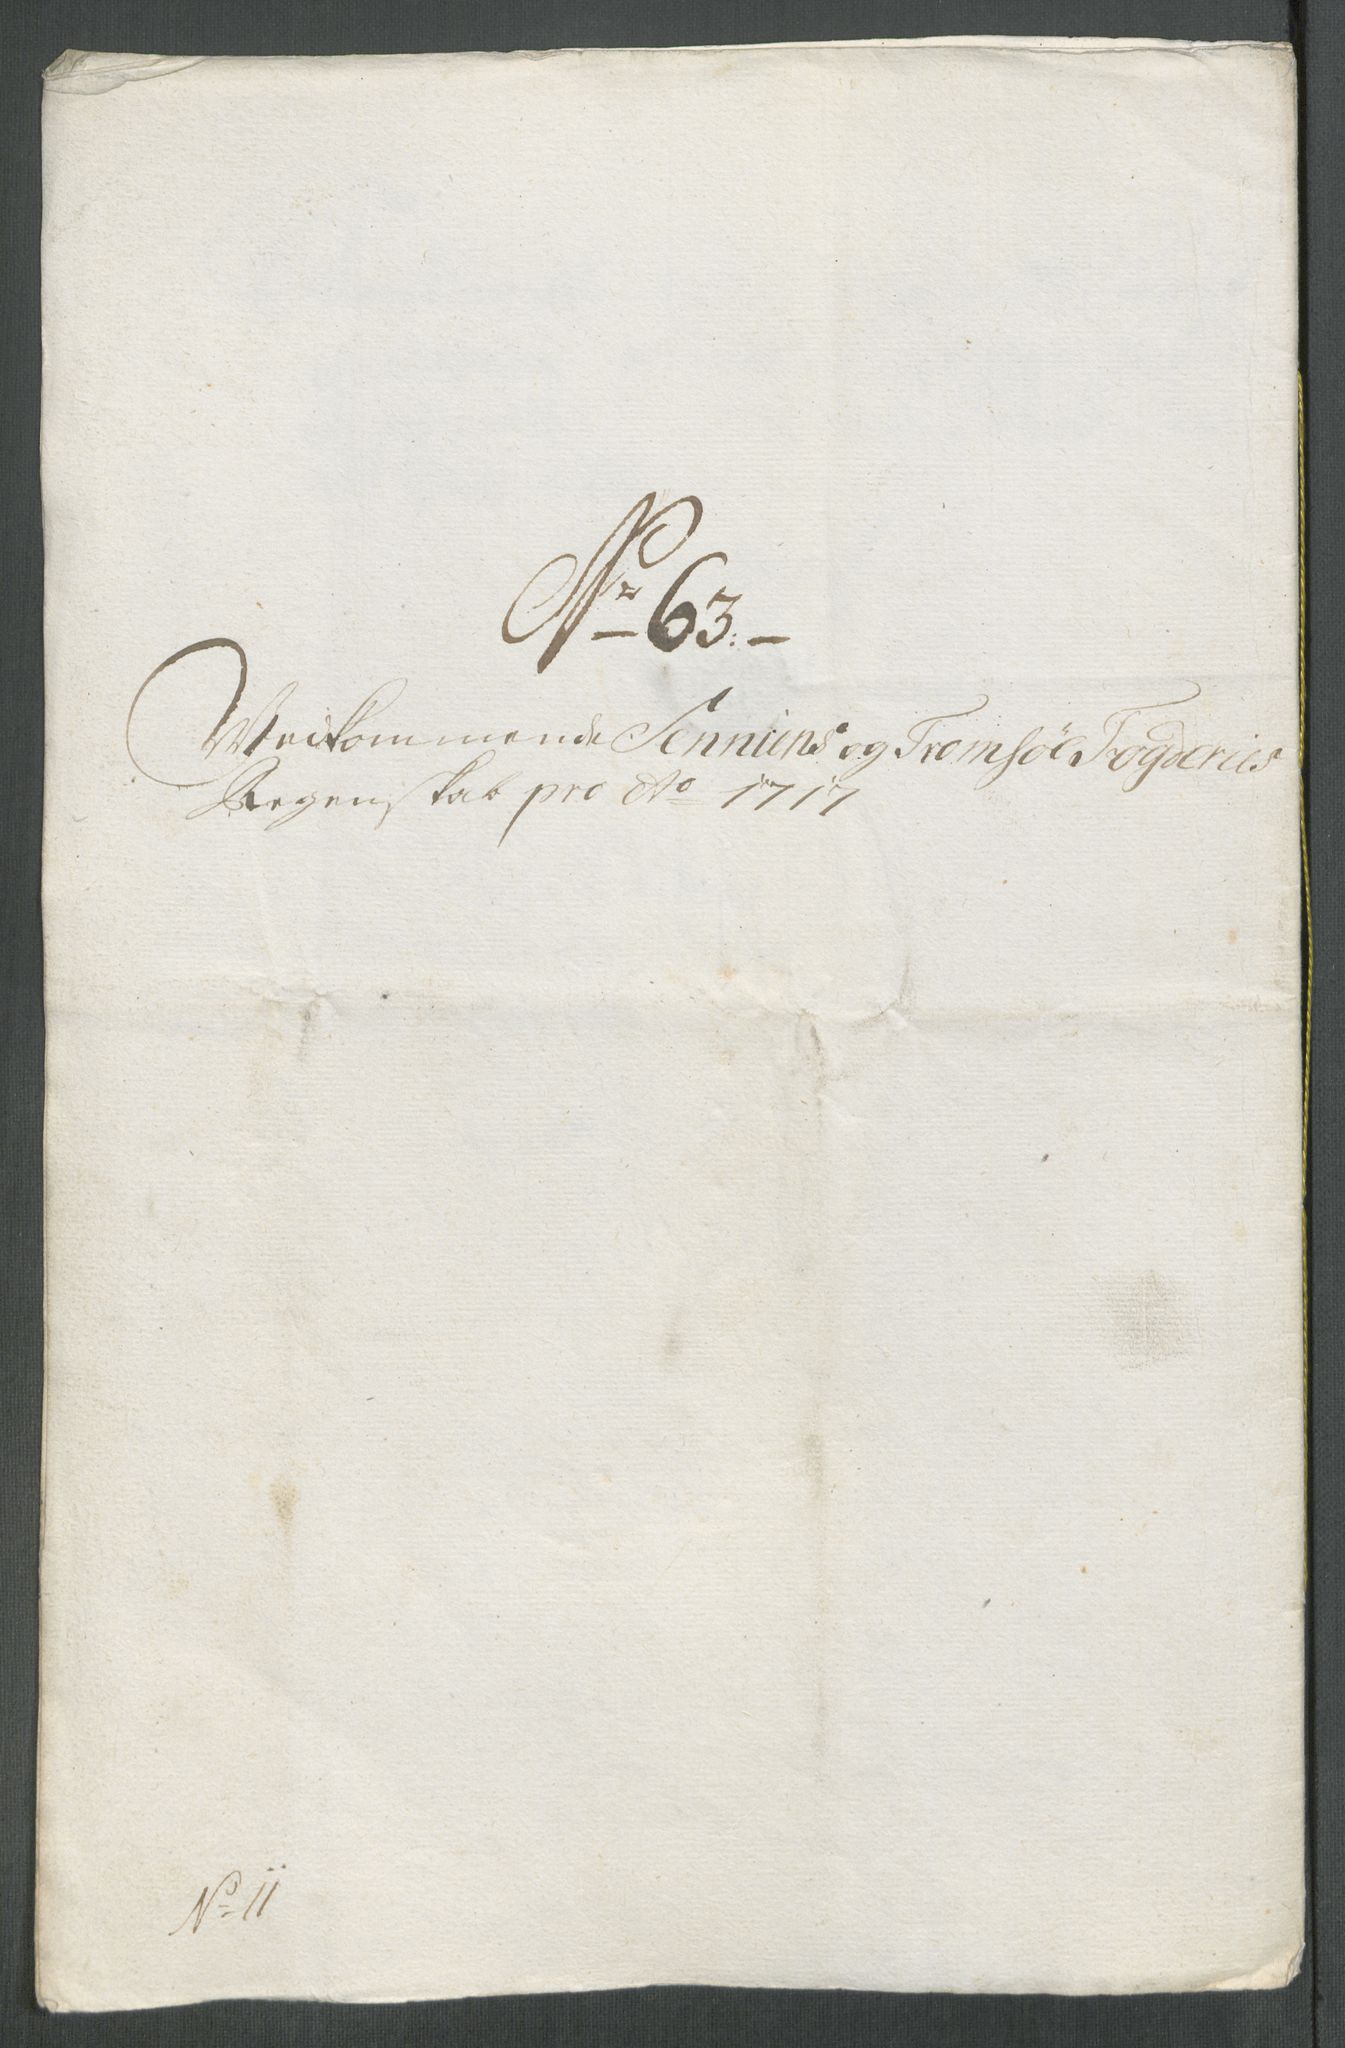 Nr 63.
Vedkommende Senniens og Tromsöe Fogderies
Regenskab pro Ao 1717
No 11